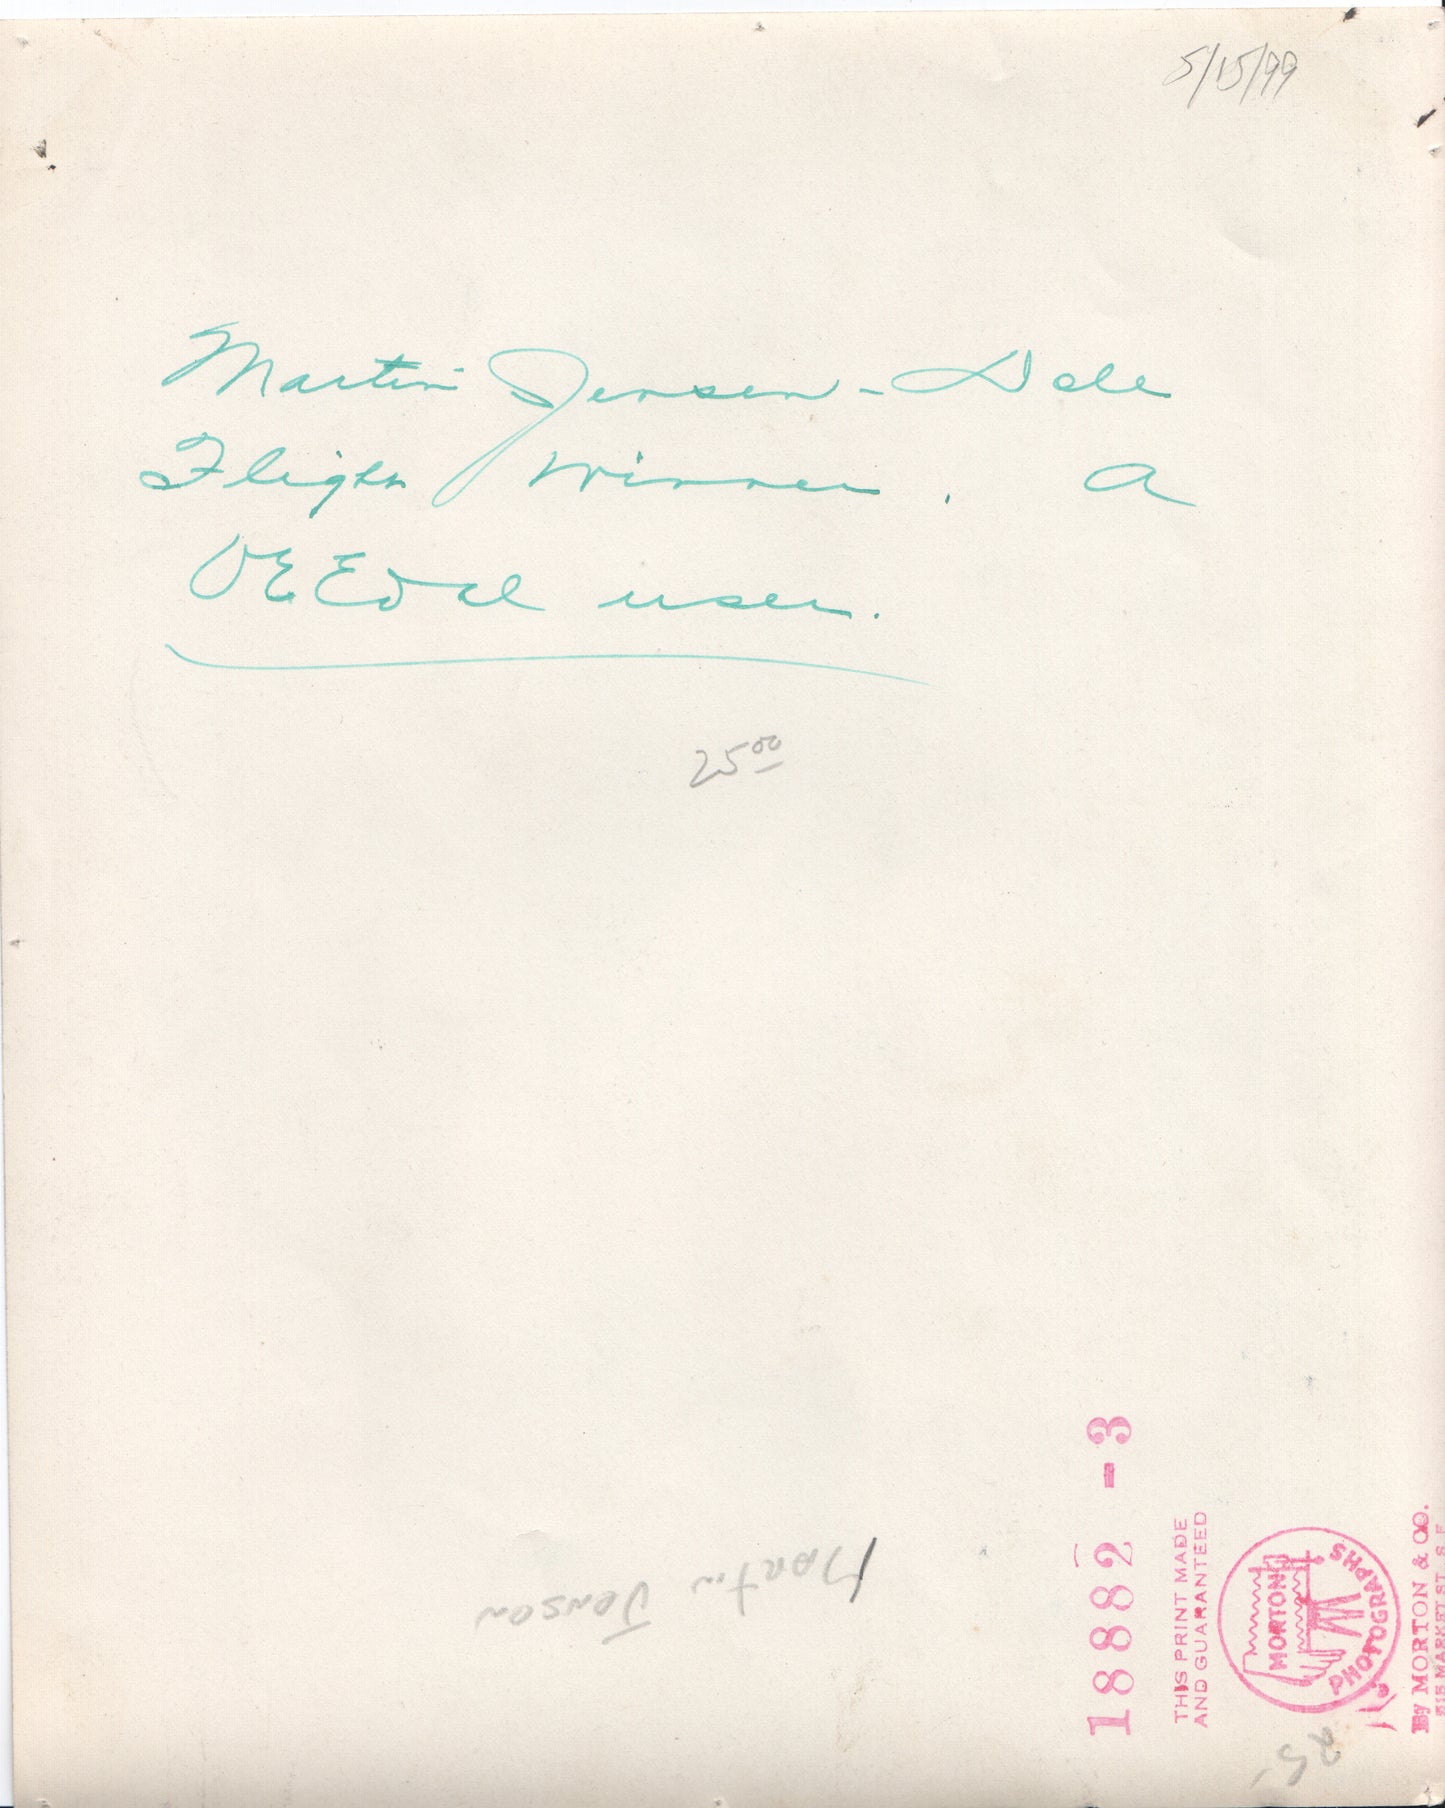 5/15/99
Martin Jensen - Dole
Flight Winner. A
VEEdol user.
25 00
Martin Jensen
18882 - 3
THIS PRINT MADE
AND GUARANTEED
MORTON
PHOTOGRAPHS
By MORTON & CO.
515 MARKET ST. S.F.
25